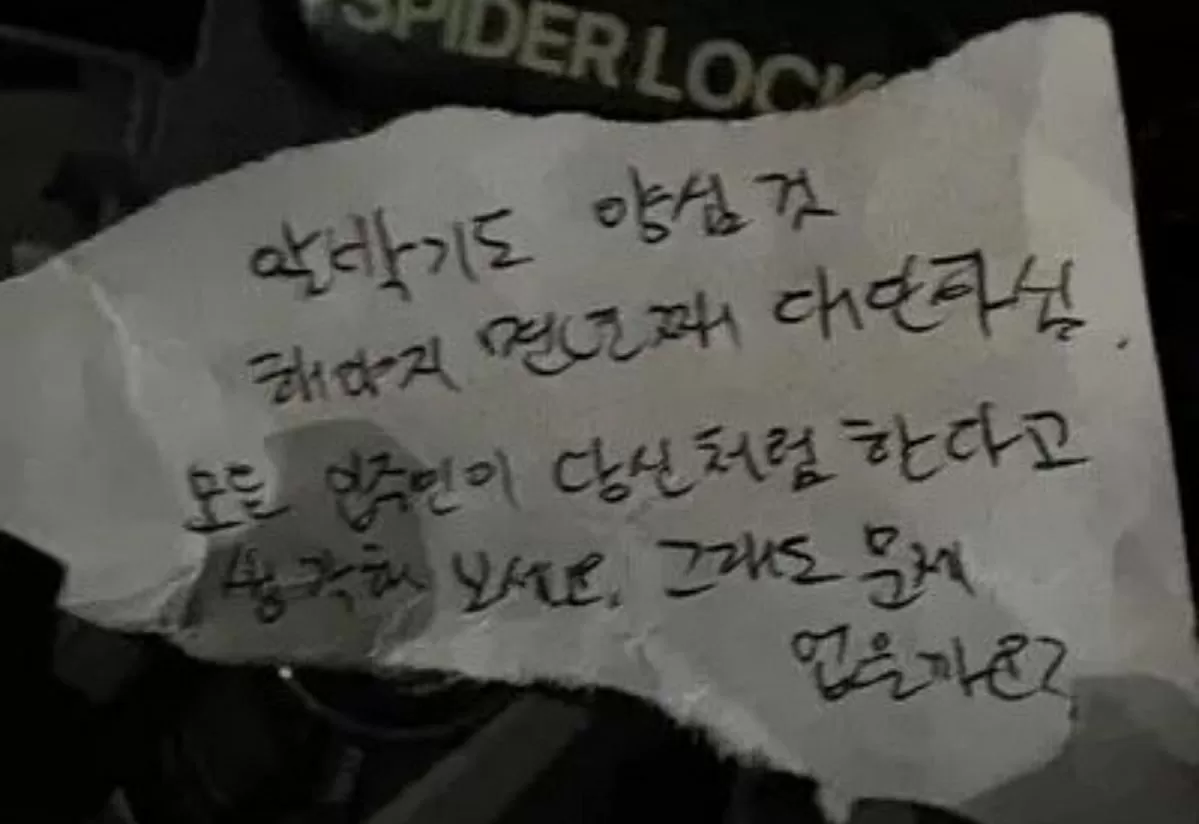 SPIDER LOCK
알박기도 양심 것
해야지 면년째 대단하심.
모든 입주민이 당신처럼 한다고
생각해 보세요. 그래도 문제
없을까요?